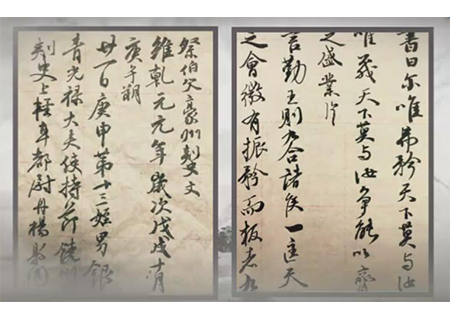 書曰尔唯弗矜天下莫与汝
唯天下莫与汝争能以齊
之盛業片
言勤王則九合諸侯一匡天
之會微有振矜而叛者九
祭伯父豪州刺史文
維乾元元年歲次戊戌十月
庚午朔
廿一日庚申第十三姪男銀
青光禄大夫使持節饒州
刺史上輕車都尉丹楊縣開